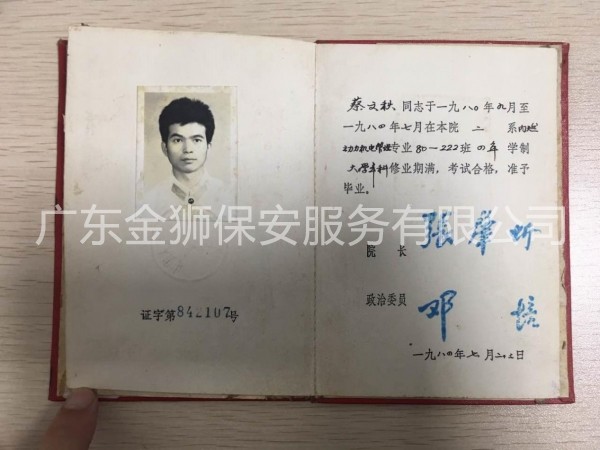 蔡文秋同志于一九八〇年九月至
一九八四年七月在本院 二 系内燃
动力机电管理专业80-222班四年学制
大学本科修业期满，考试合格，准予
毕业。
广东金狮保安服务有限公司
院长 張肇圻
政治委员 邓培
证字第842107号
一九八四年七月二十二日